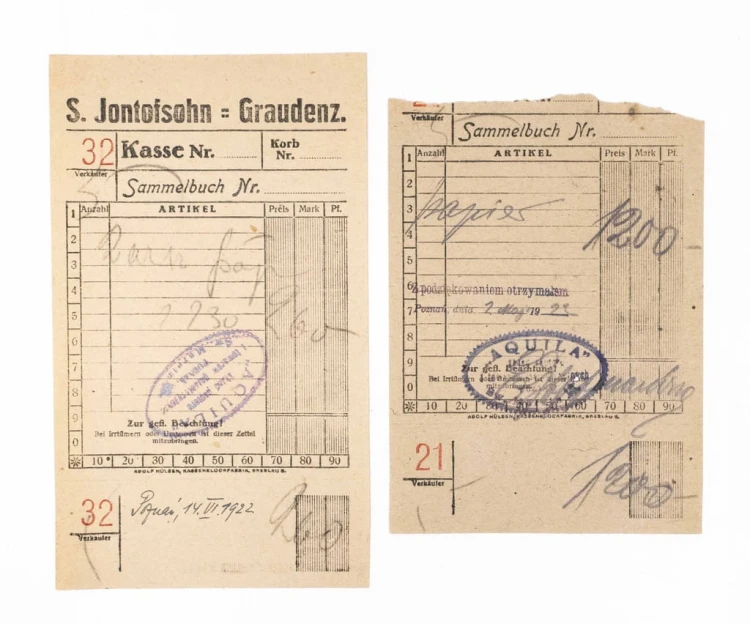 S. Jontofsohn = Graudenz.
32
Verkäufer
Kasse Nr.
Korb
Nr.
Sammelbuch Nr.
Anzahl ARTIKEL Preis Mark Pf.
1
2
3
4
5
6
7
8
9
0
260
"AQUILA"
Zur gefl. Beachtung!
Bei Irrtümern oder Umtausch ist dieser Zettel
mitzubringen.
10 20 30 40 50 60 70 80 90
32
Verkäufer
Poznań, 14.VI.1922
260
Verkäufer
Sammelbuch Nr.
Anzahl ARTIKEL Preis Mark Pf.
1
2
3
4
5
6
7
8
9
0
papier
1200
Z podziękowaniem otrzymałem
Poznań, dnia 2 Maj 1922
"AQUILA"
Zur gefl. Beachtung!
Bei Irrtümern oder ist dieser
mitzubringen.
10 20 30 40 50 60 70 80 90
21
Verkäufer
1200